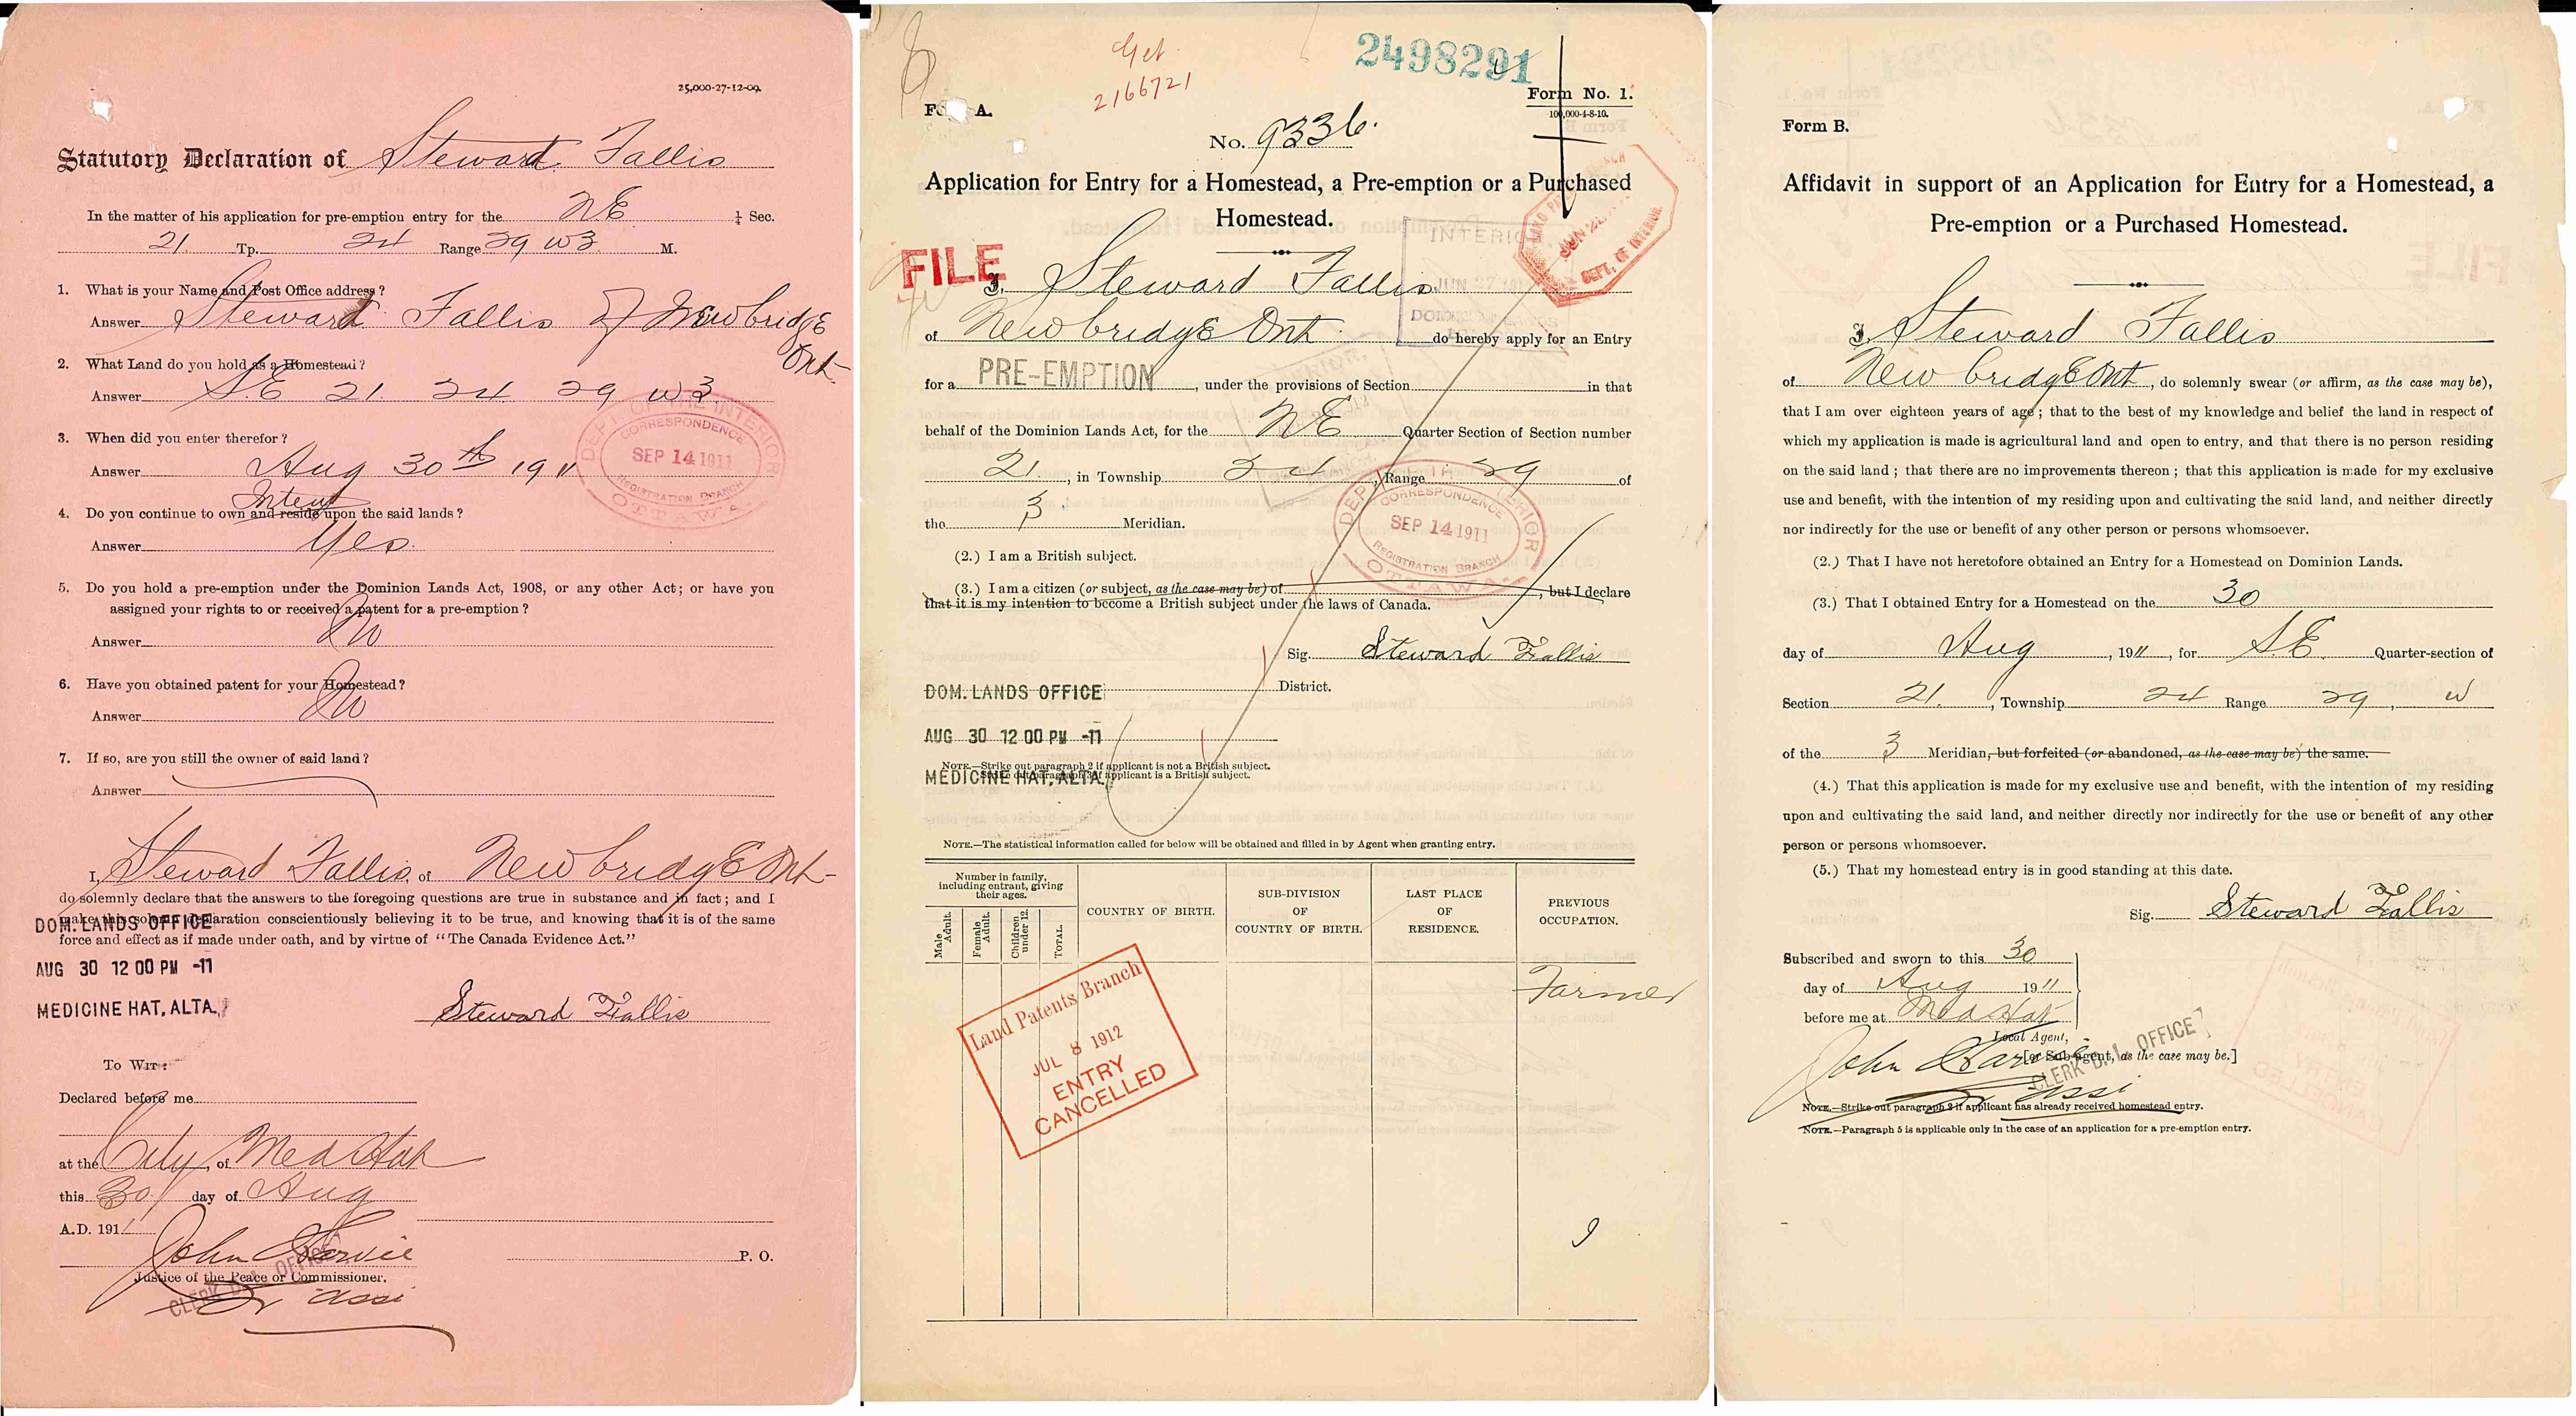 25,000-27-12-09.
Statutory Declaration of Steward Fallis
In the matter of his application for pre-emption entry for the NE ¼ Sec.
21 Tp. 24 Range 29 W3 M.
1. What is your Name and Post Office address?
Answer Steward Fallis of Newbridge
Ont-
2. What Land do you hold as a Homestead?
Answer S.E 21. 24. 29 W3.
3. When did you enter therefor?
Answer Aug 30th 1911
Intend
4. Do you continue to own and reside upon the said lands?
Answer Yes.
5. Do you hold a pre-emption under the Dominion Lands Act, 1908, or any other Act; or have you
assigned your rights to or received a patent for a pre-emption?
Answer No
6. Have you obtained patent for your Homestead?
Answer No
7. If so, are you still the owner of said land?
Answer
I, Steward Fallis, of Newbridge Ont-
do solemnly declare that the answers to the foregoing questions are true in substance and in fact; and I
make this solemn declaration conscientiously believing it to be true, and knowing that it is of the same
force and effect as if made under oath, and by virtue of "The Canada Evidence Act."
DOM. LANDS OFFICE
AUG 30 12 00 PM -11
MEDICINE HAT, ALTA.
Steward Fallis
To Wit:
Declared before me
at the City, of Med Hat
this 30 day of Aug
A.D. 1911
John Harvie
P. O.
Justice of the Peace or Commissioner.
CLERK D. L. OFFICE
DEPT OF THE INTERIOR
CORRESPONDENCE
SEP 14 1911
REGISTRATION BRANCH
OTTAWA
Get
2166721
2498291
Form No. 1.
100,000-4-8-10.
A.
No. 9336.
Application for Entry for a Homestead, a Pre-emption or a Purchased
Homestead.
FILE
INTERIOR
DEPT. OF INTERIOR
I, Steward Fallis
of Newbridge Ont do hereby apply for an Entry
for a PRE-EMPTION, under the provisions of Section in that
behalf of the Dominion Lands Act, for the NE Quarter Section of Section number
21., in Township 24, Range 29 of
the 3 Meridian.
(2.) I am a British subject.
(3.) I am a citizen (or subject, as the case may be) of , but I declare
that it is my intention to become a British subject under the laws of Canada.
DEPT OF THE INTERIOR
CORRESPONDENCE
SEP 14 1911
REGISTRATION BRANCH
OTTAWA
Sig. Steward Fallis
District.
DOM. LANDS OFFICE
AUG 30 12 00 PM -11
MEDICINE HAT, ALTA.
NOTE.—Strike out paragraph 2 if applicant is not a British subject.
Strike out paragraph 3 if applicant is a British subject.
NOTE.—The statistical information called for below will be obtained and filled in by Agent when granting entry.
Number in family, including entrant, giving their ages.
Male Adult.
Female Adult.
Children under 12.
TOTAL.
COUNTRY OF BIRTH.
SUB-DIVISION OF COUNTRY OF BIRTH.
LAST PLACE OF RESIDENCE.
PREVIOUS OCCUPATION.
Farmer
Land Patents Branch
JUL 8 1912
ENTRY
CANCELLED
Form B.
Affidavit in support of an Application for Entry for a Homestead, a
Pre-emption or a Purchased Homestead.
I, Steward Fallis
of Newbridge Ont, do solemnly swear (or affirm, as the case may be),
that I am over eighteen years of age; that to the best of my knowledge and belief the land in respect of
which my application is made is agricultural land and open to entry, and that there is no person residing
on the said land; that there are no improvements thereon; that this application is made for my exclusive
use and benefit, with the intention of my residing upon and cultivating the said land, and neither directly
nor indirectly for the use or benefit of any other person or persons whomsoever.
(2.) That I have not heretofore obtained an Entry for a Homestead on Dominion Lands.
(3.) That I obtained Entry for a Homestead on the 30
day of Aug, 1911, for S.E. Quarter-section of
Section 21., Township 24 Range 29, W
of the 3 Meridian, but forfeited (or abandoned, as the case may be) the same.
(4.) That this application is made for my exclusive use and benefit, with the intention of my residing
upon and cultivating the said land, and neither directly nor indirectly for the use or benefit of any other
person or persons whomsoever.
(5.) That my homestead entry is in good standing at this date.
Sig. Steward Fallis
Subscribed and sworn to this 30
day of Aug 1911
before me at Med Hat
Local Agent,
[or Sub-agent, as the case may be.]
John Harvie
CLERK D. L. OFFICE
NOTE.—Strike out paragraph 2 if applicant has already received homestead entry.
NOTE.—Paragraph 5 is applicable only in the case of an application for a pre-emption entry.